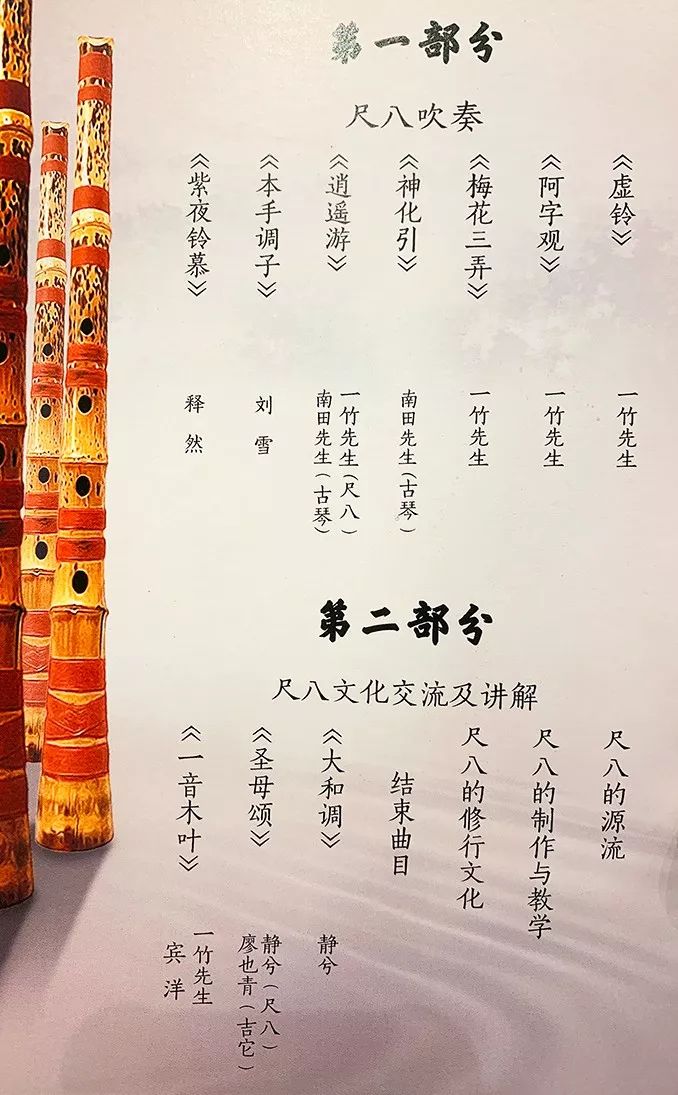 第一部分
尺八吹奏
《虚铃》
一竹先生
《阿字观》
一竹先生
《梅花三弄》
一竹先生
《神化引》
南田先生(古琴)
《逍遥游》
一竹先生(尺八)
南田先生(古琴)
《本手调子》
刘雪
《紫夜铃慕》
释然
第二部分
尺八文化交流及讲解
尺八的源流
尺八的制作与教学
尺八的修行文化
结束曲目
《大和调》
静兮
《圣母颂》
静兮(尺八)
廖也青(吉它)
《一音木叶》
一竹先生
宾洋